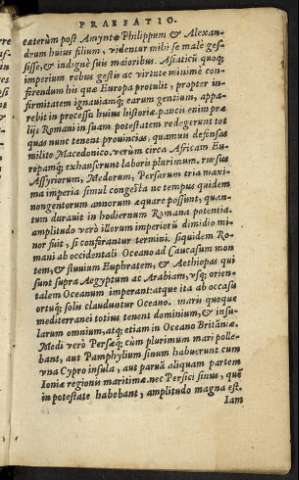 PRAEFATIO.
cæterùm post Amyntæ Philippum & Alexan-
drum huius filium, videntur mihi se male ges-
sisse, & indignè suis maioribus. Asiaticũ quoq;
imperium rebus gestis ac virtute minimè con-
ferendum his quæ Europa protulit, propter in-
firmitatem ignauiamq́; earum gentium, appa-
rebit in processu huius historiæ. paucis enim præ
lijs Romani in suam potestatem redegerunt tot
quas nunc tenent prouincias, quamuis defensas
milite Macedonico. verùm circa Africam Eu-
ropamq́; exhauserunt laboris plurimum. rursus
Assyriorum, Medorum, Persarum tria maxi-
ma imperia simul congesta uc tempus quidem
nongentorum annorum æquare possunt, quan-
tum durauit in hodiernum Romana potentia.
amplitudo verò illorum imperiorũ dimidio mi-
nor fuit, si conferantur termini. siquidem Ro-
mani ab occidentali Oceano ad Caucasum mon
tem, & fluuium Euphratem, & Aethiopas qui
sunt supra Aegyptum ac Arabiam, vsq; orien-
talem Oceanum imperant: atque ita ab occasu
ortuq́; solis clauduntur Oceano. maris quoque
mediterranei totius tenent dominium, & insu-
larum omnium, atq; etiam in Oceano Britãniæ.
Medi verò Persæq́; cùm plurimum mari polle-
bant, aut Pamphylium sinum habuerunt cum
vna Cypro insula, aut paruã aliquam partem
Ioniæ regionis maritimæ. nec Persici sinus, quẽ
in potestate habebant, amplitudo magna est.
Iam